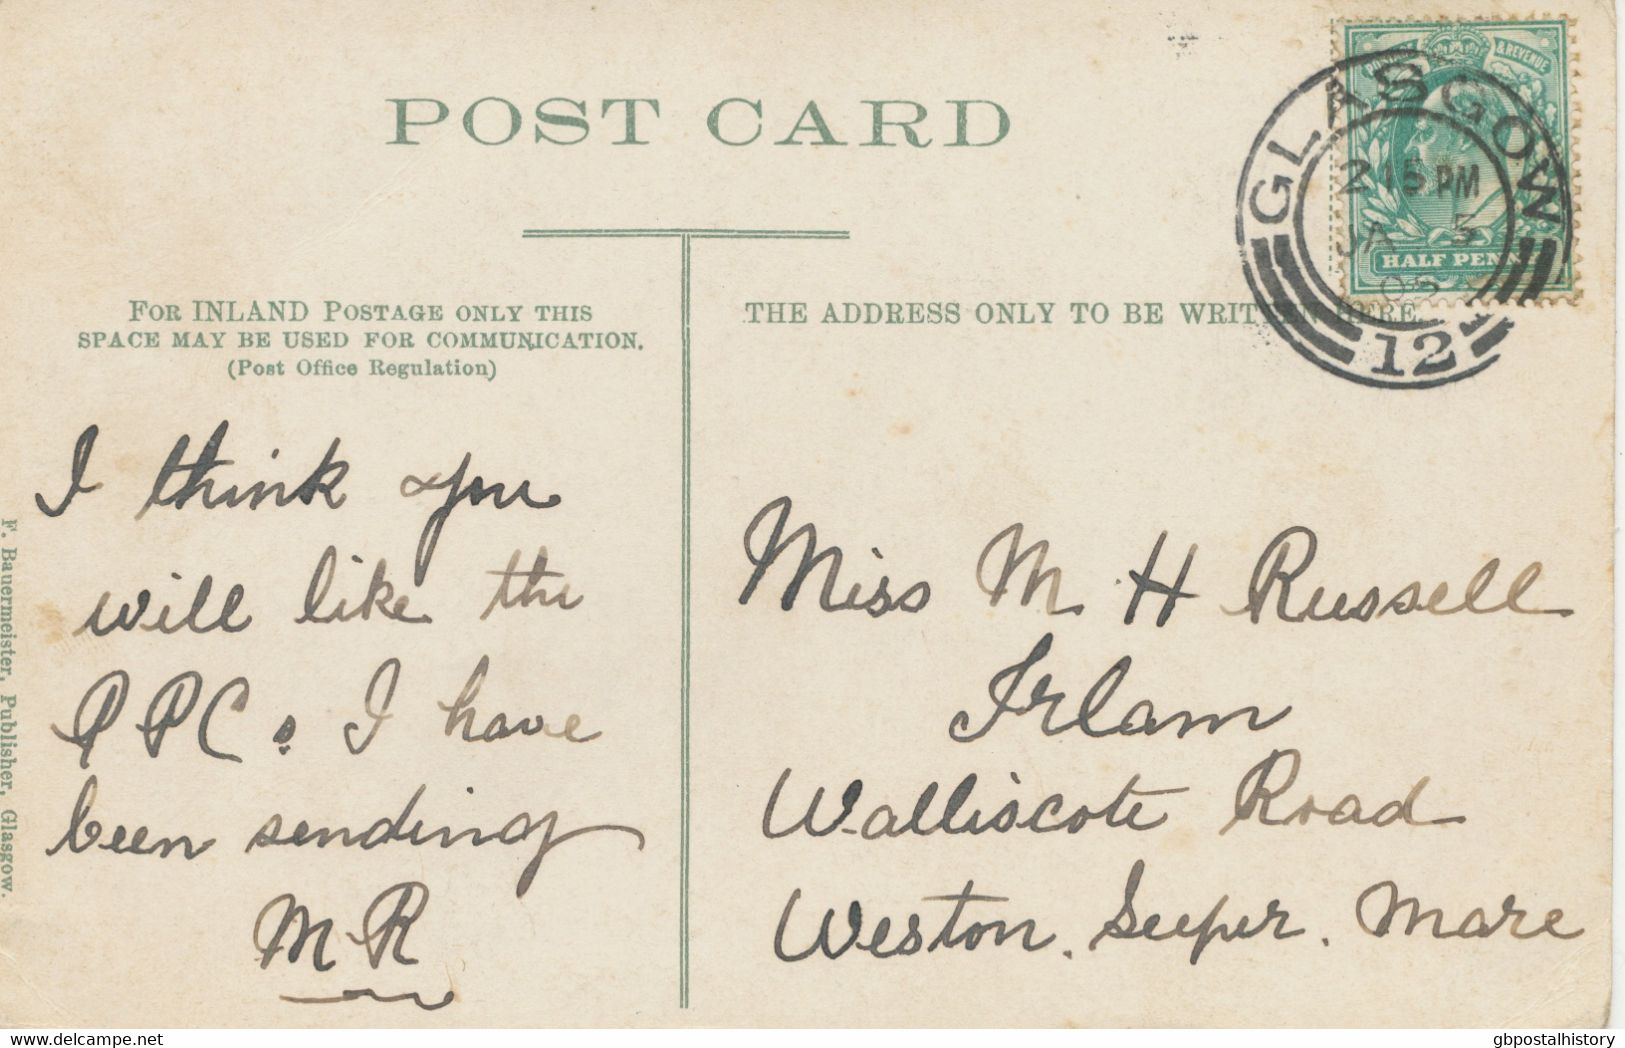 POST CARD
POSTAGE & REVENUE
GLASGOW
2 15 PM
JA 5
12
HALF PENNY
FOR INLAND POSTAGE ONLY THIS
SPACE MAY BE USED FOR COMMUNICATION.
(Post Office Regulation)
THE ADDRESS ONLY TO BE WRITTEN HERE.
I think you
will like the
PPCs I have
been sending
M R
Miss M. H Russell
Irlam
Walliscote Road
Weston. Super. Mare
F. Bauermeister, Publisher, Glasgow.
delcampe.net
gbpostalhistory